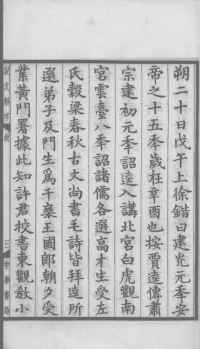 朔二十日戊午上徐鍇曰建光元秊安
帝之十五秊歲在辛酉也按賈逵傳肅
宗建初元秊詔逵入講北宮白虎觀南
宮雲臺八秊詔諸儒各選高才生受左
氏穀梁春秋古文尚書毛詩皆拜逵所
選弟子及門生爲千乘王國郎朝夕受
業黃門署據此知許君校書東觀敎小